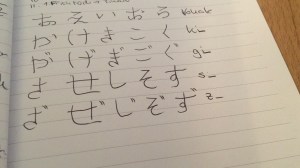 あ え い お う blank
か け き こ く k_
が げ ぎ ご ぐ g_
さ せ し そ す s_
ざ ぜ じ ぞ ず z_